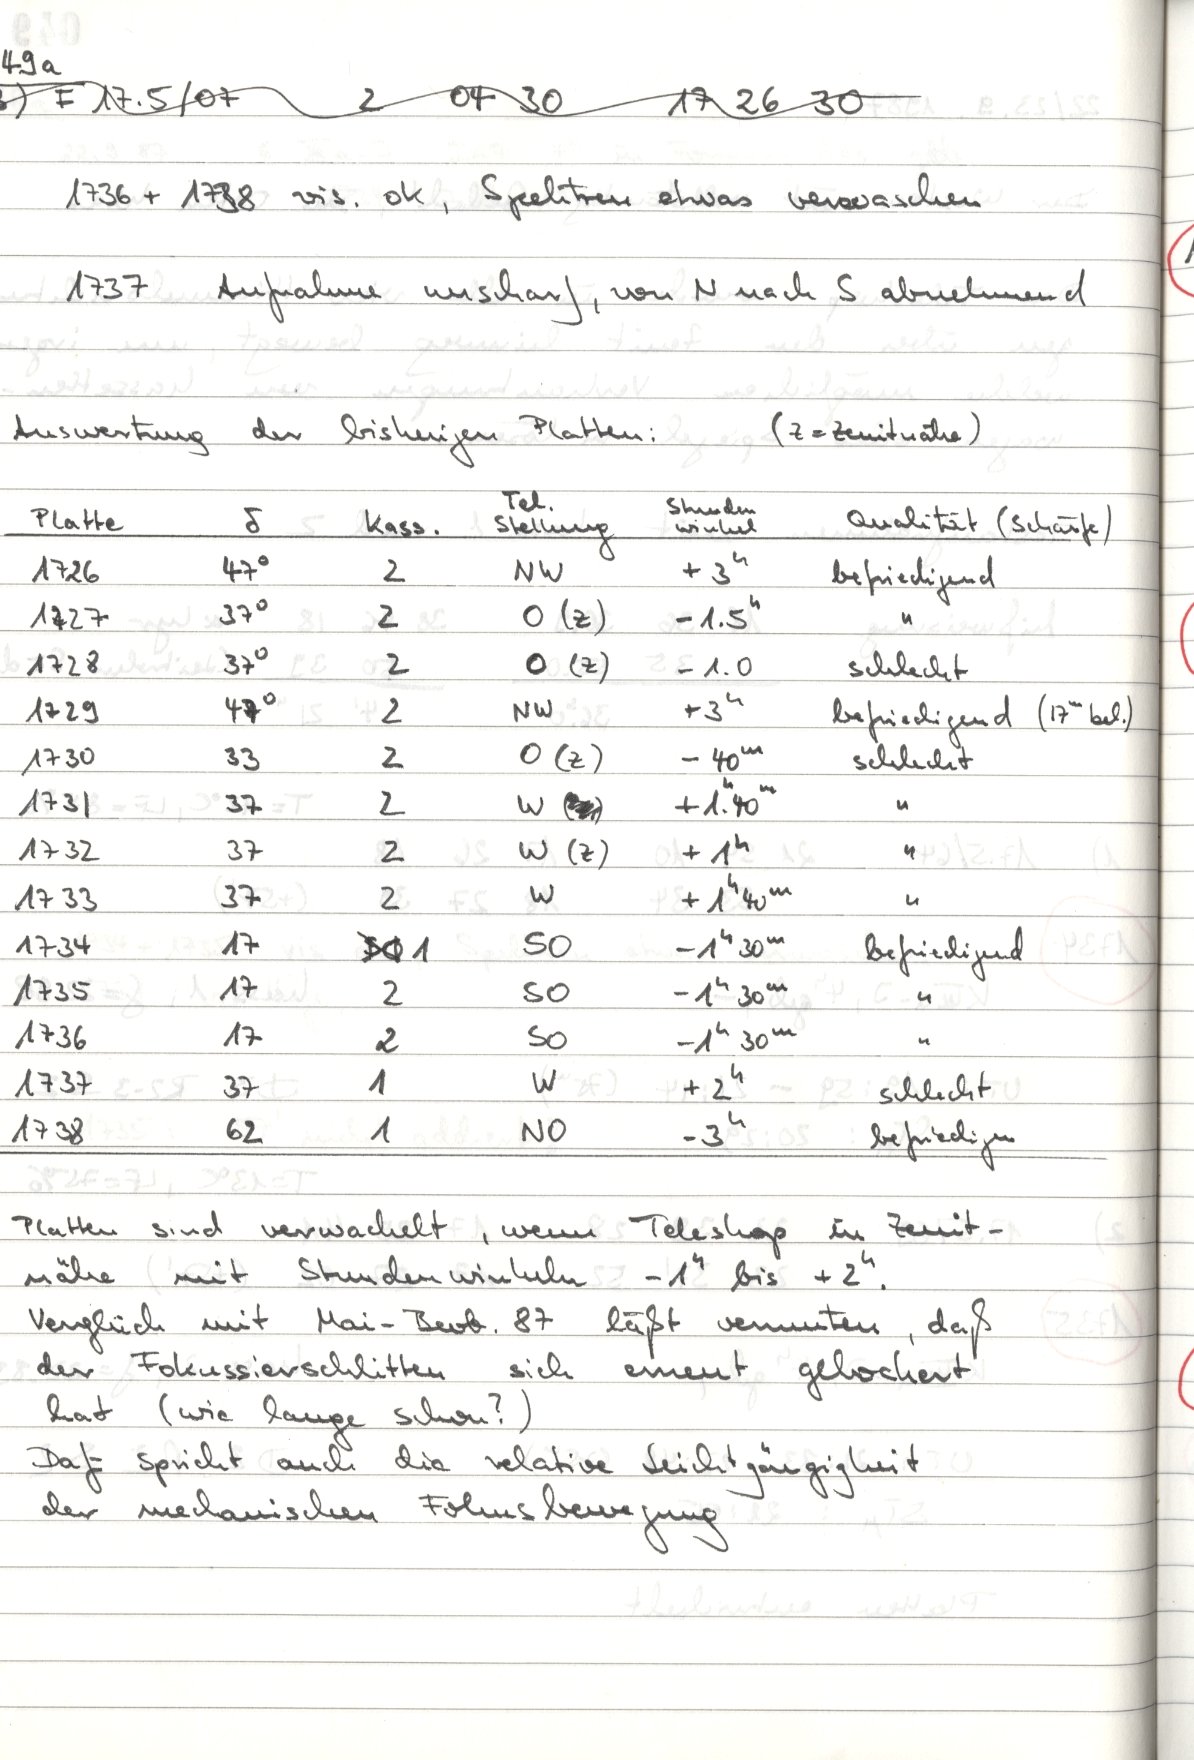 49a
3) F 17.5/07 2 04 30 17 26 30
1736 + 1738 vis. ok, Spektren etwas verwaschen
1737 Aufnahme unscharf, von N nach S abnehmend
Auswertung der bisherigen Platten: (Z = Zenitnähe)
Platte δ Kass. Tel. Stellung Stunden winkel Qualität (Schärfe)
1726 47° 2 NW + 3h befriedigend
1727 37° 2 O (Z) - 1.5h "
1728 37° 2 O (Z) - 1.0 schlecht
1729 47° 2 NW +3h befriedigend (17m bel.)
1730 33 2 O (Z) - 40m schlecht
1731 37 2 W + 1h 40m "
1732 37 2 W (Z) + 1h "
1733 37 2 W + 1h 40m "
1734 17 1 SO -1h 30m befriedigend
1735 17 2 SO -1h 30m "
1736 17 2 SO -1h 30m "
1737 37 1 W + 2h schlecht
1738 62 1 NO -3h befriedigen
Platten sind verwackelt, wenn Teleskop in Zenit-
nähe mit Stundenwinkeln -1h bis +2h.
Vergleich mit Mai-Beob. 87 läßt vermuten, daß
der Fokussierschlitten sich erneut gelockert
hat (wie lange schon?)
spricht auch die relative Leichtgängigkeit
der mechanischen Fokusbewegung